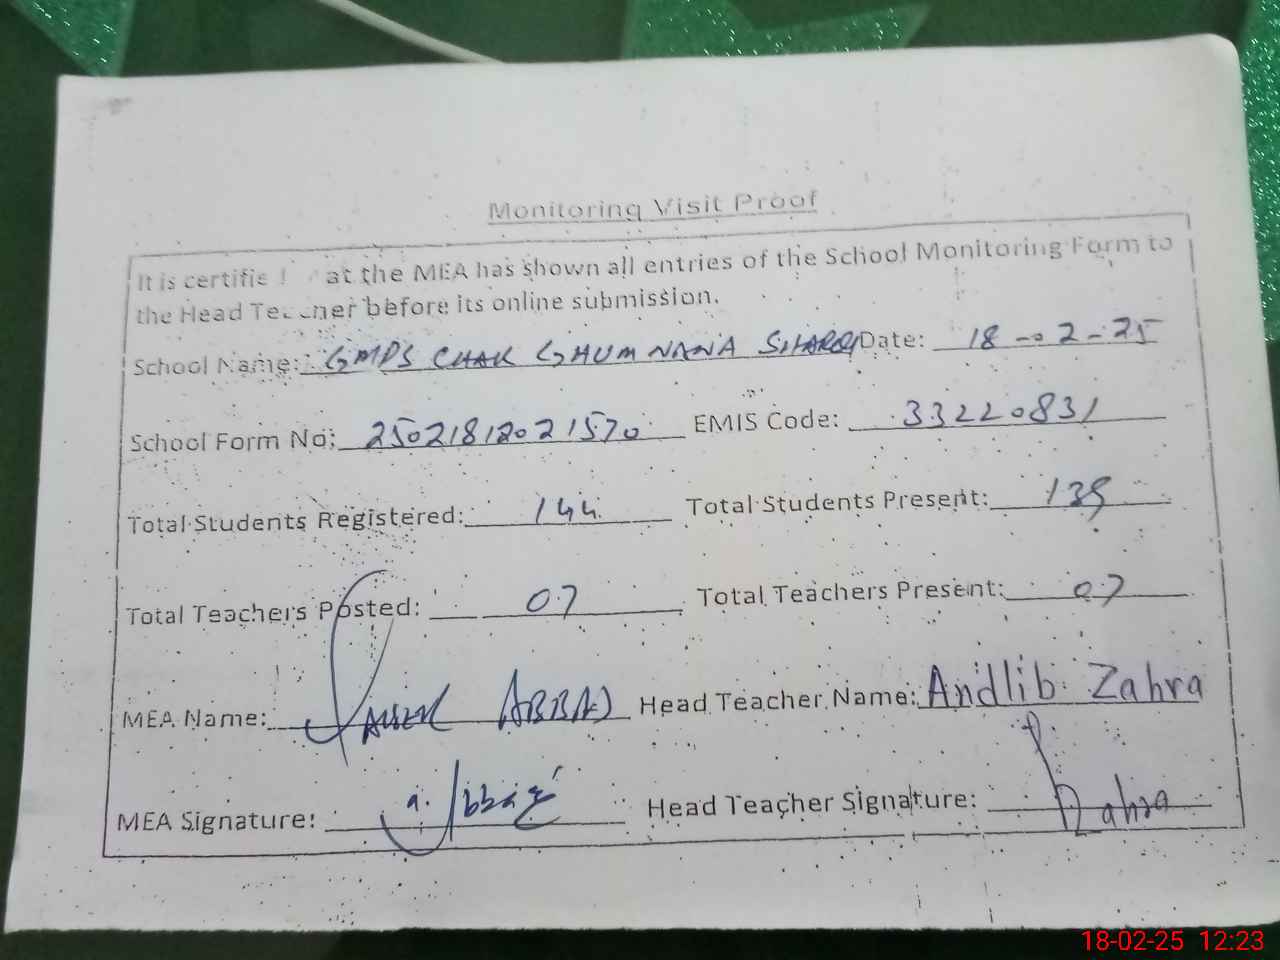 Monitoring Visit Proof
It is certifie at the MEA has shown all entries of the School Monitoring Form to
the Head Teacher before its online submission.
School Name: GMPS CHAK GHUMNANA SHARQI Date: 18-02-25
School Form No: 25021812021570 EMIS Code: 33220831
Total Students Registered: 144 Total Students Present: 139
Total Teachers Posted: 07 Total Teachers Present: 07
MEA Name: ABBAS Head Teacher Name: Andlib Zahra
MEA Signature: a. Abbas Head Teacher Signature: Zahra
18-02-25 12:23